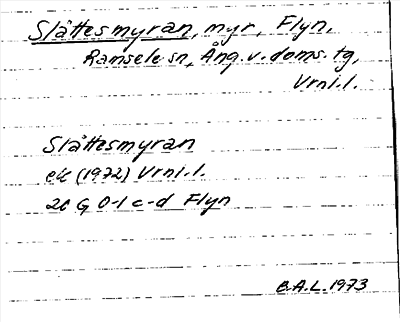 Slättesmyran, myr, Flyn,
Ramsele sn, Ång.v. doms. tg,
Vrnl.l.
Slättesmyran
ek (1972) Vrnl.l.
20 G 0-1 c-d Flyn
B.A.L. 1973